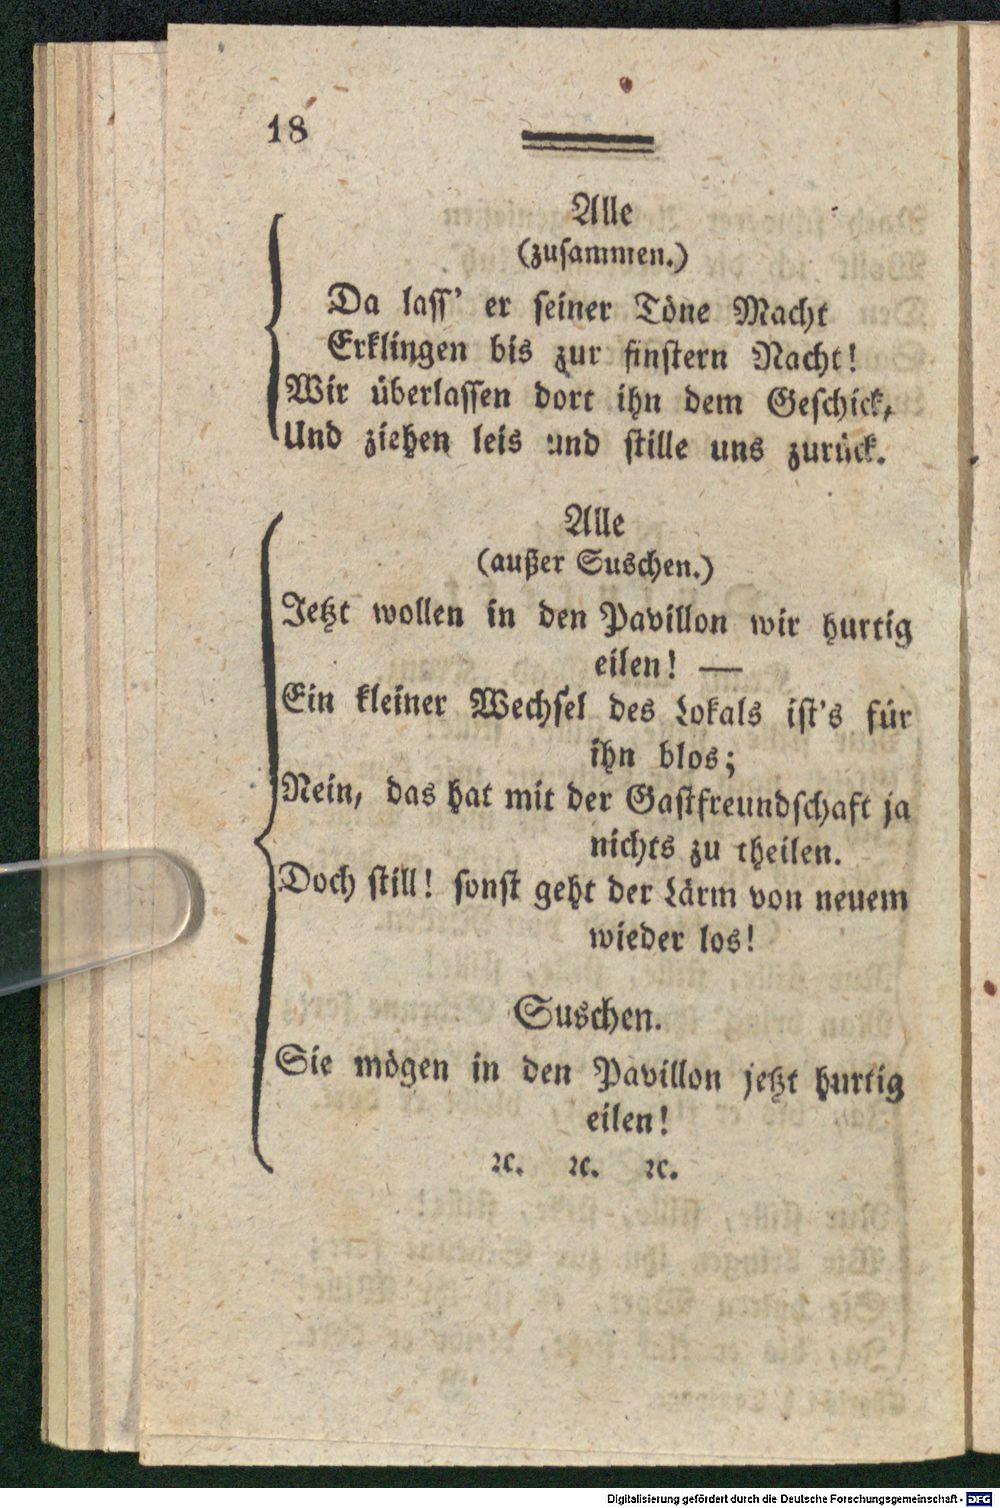 18
Alle
(zusammen.)
Da lass' er seiner Töne Macht
Erklingen bis zur finstern Nacht!
Wir überlassen dort ihn dem Geschick,
Und ziehen leis und stille uns zurück.
Alle
(außer Suschen.)
Jetzt wollen in den Pavillon wir hurtig
eilen! —
Ein kleiner Wechsel des Lokals ist's für
ihn blos;
Nein, das hat mit der Gastfreundschaft ja
nichts zu theilen.
Doch still! sonst geht der Lärm von neuem
wieder los!
Suschen.
Sie mögen in den Pavillon jetzt hurtig
eilen!
ꝛc. ꝛc. ꝛc.
Digitalisierung gefördert durch die Deutsche Forschungsgemeinschaft - DFG